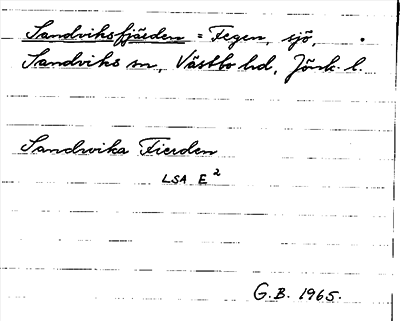 Sandviksfjärden = Fegen, sjö,
Sandviks sn, Västbo hd, Jönk. l.
Sandvika Fierden
LSA E²
G.B. 1965.